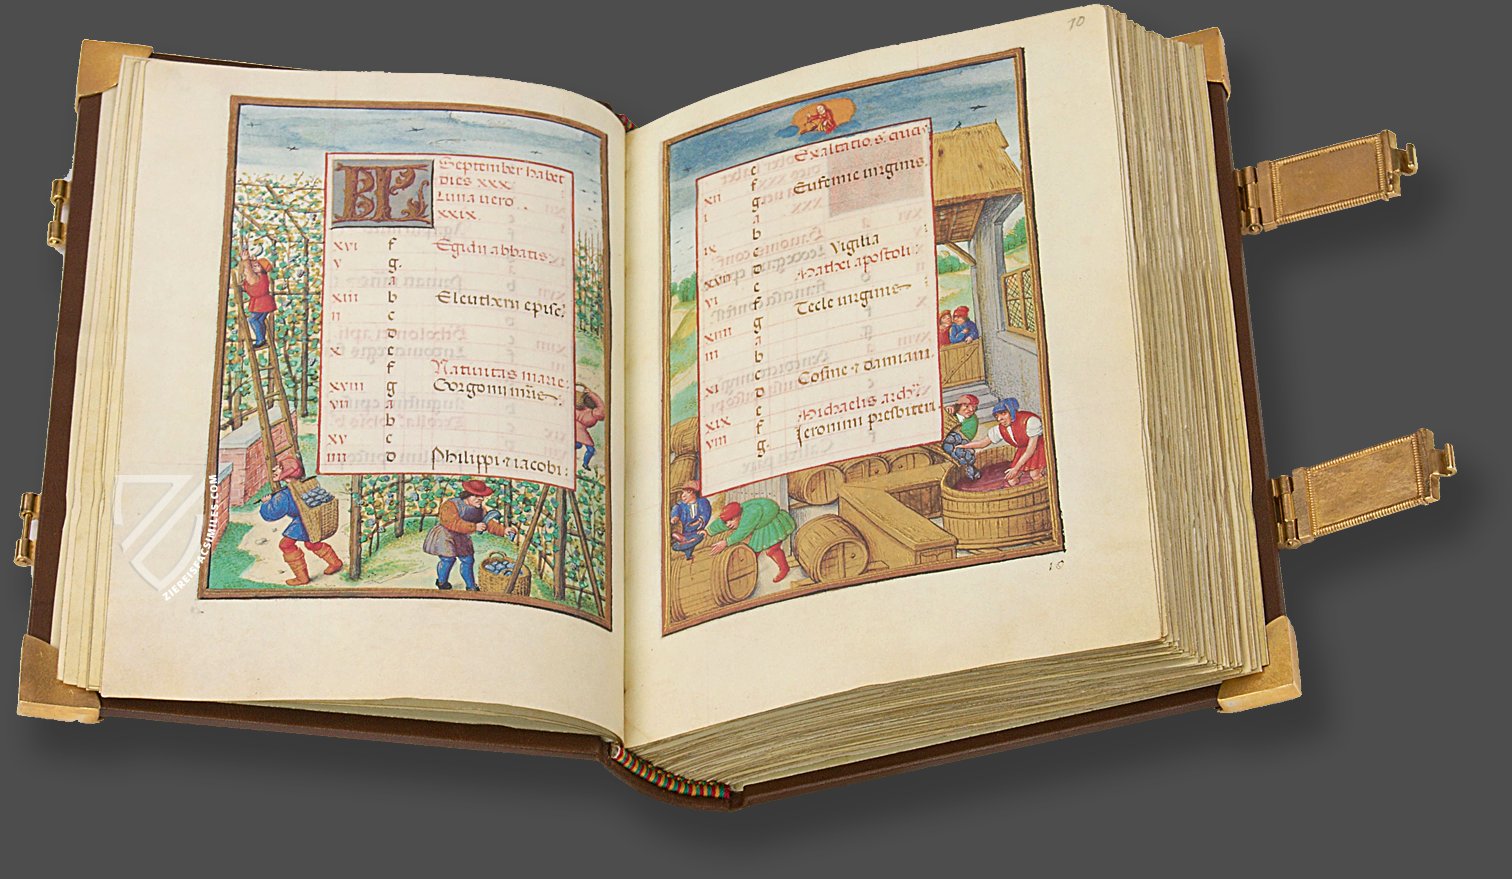 KL
September habet
dies xxx.
Luna uero
xxix.
xvi f Egidii abbatis:
v g.
a
xiii b Eleutherii episc:
ii c
d
x e
f Natiuitas marie:
xviii g Gorgonii mris
vii a
b
xv c
iiii d Philippi ⁊ iacobi:
70
e Exaltatio. s. cruc:
xii f Eufemie uirginis.
i g.
a
b
ix c Vigilia
xvii d Mathei apostoli:
vi e
f Tecle uirginis
xiiii g
iii a
b
xi c Cosme ⁊ damiani.
d
xix e Michaelis arch
viii f Jeronimi presbiteri
g.
ZIEREISFACSIMILES.COM